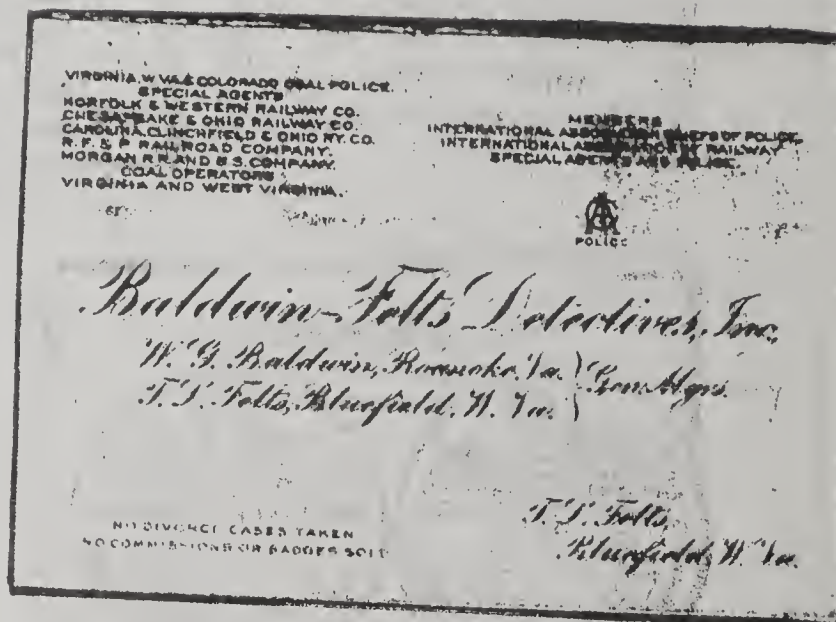 VIRGINIA, W. VA. & COLORADO COAL POLICE.
SPECIAL AGENTS
NORFOLK & WESTERN RAILWAY CO.
CHESAPEAKE & OHIO RAILWAY CO.
CAROLINA, CLINCHFIELD & OHIO RY. CO.
R. F. & P. RAILROAD COMPANY.
MORGAN R.R. AND B.S. COMPANY.
COAL OPERATORS
VIRGINIA AND WEST VIRGINIA.
MEMBERS
INTERNATIONAL ASSOCIATION CHIEFS OF POLICE,
INTERNATIONAL ASSOCIATION OF RAILWAY
SPECIAL AGENTS AND POLICE.
POLICE
Baldwin-Felts Detectives, Inc.
W. G. Baldwin, Roanoke, Va. } Gen. Mgrs.
T. L. Felts, Bluefield, W. Va.
NO DIVORCE CASES TAKEN
NO COMMISSIONS OR BADGES SOLD
T. L. Felts,
Bluefield, W. Va.